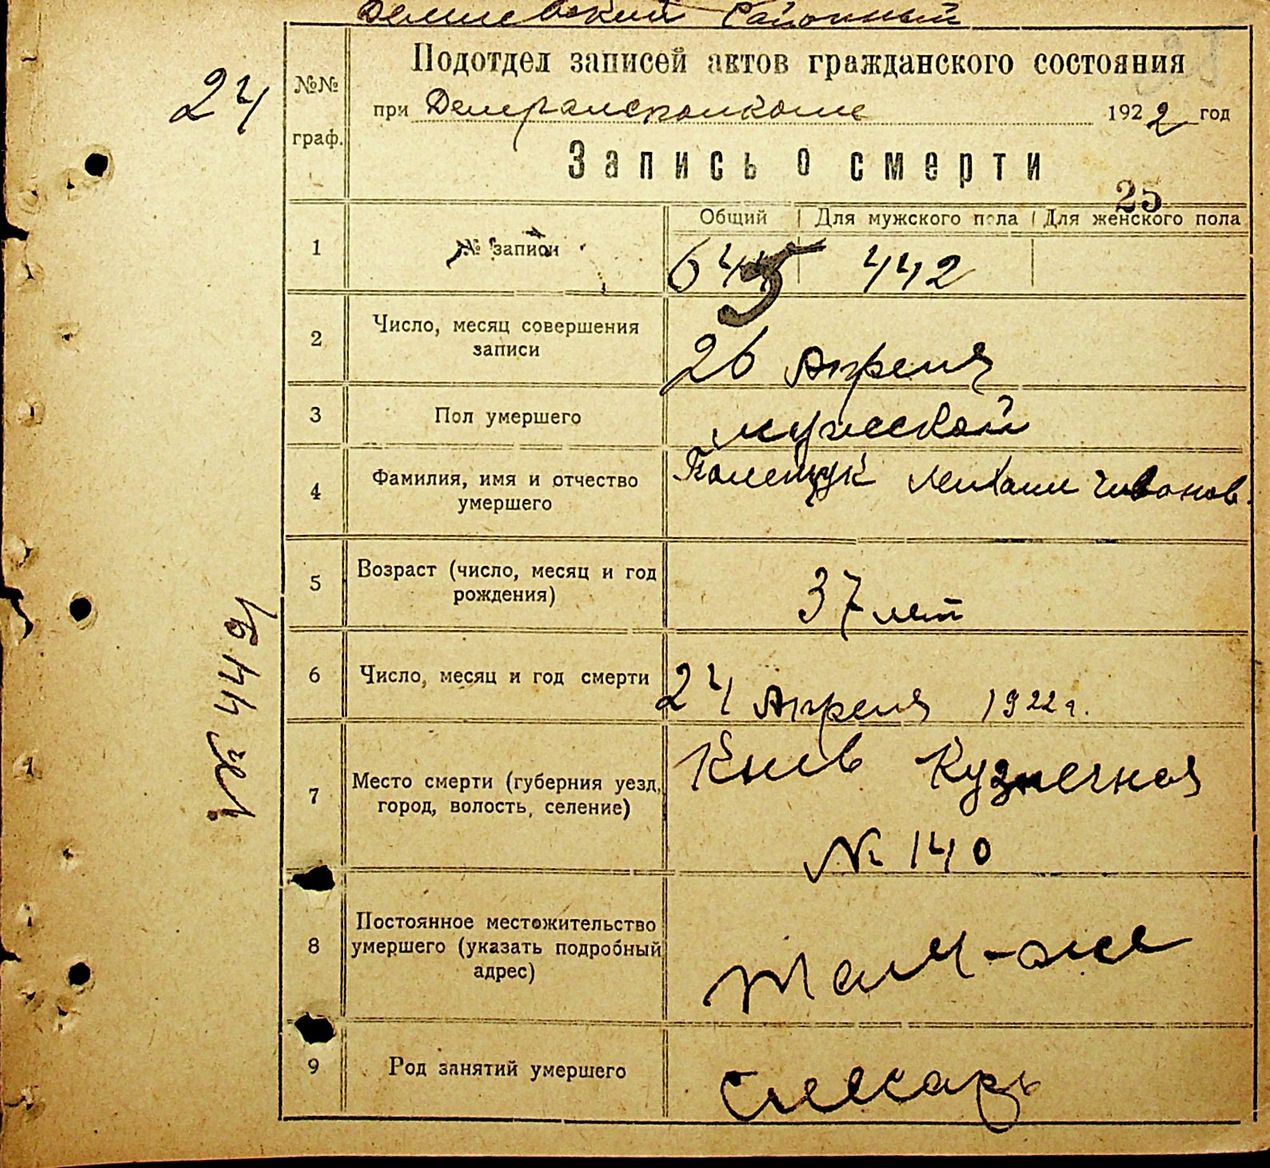 Демиевский Районный
Подотдел записей актов гражданского состояния
24
№№ граф.
при Демрайисполкоме 1922 год
Запись о смерти
25
Общий Для мужского пола Для женского пола
1 № записи 645 442
2 Число, месяц совершения
записи
26 Апреля
3 Пол умершего мужской
4 Фамилия, имя и отчество
умершего
Полещук Михаил Иванов.
5 Возраст (число, месяц и год
рождения)
37 лет
6 Число, месяц и год смерти 24 Апреля 1922 г.
7 Место смерти (губерния уезд,
город, волость, селение)
Киев Кузнечная
№ 140
8 Постоянное местожительство
умершего (указать подробный
адрес)
там-же
9 Род занятий умершего слесарь